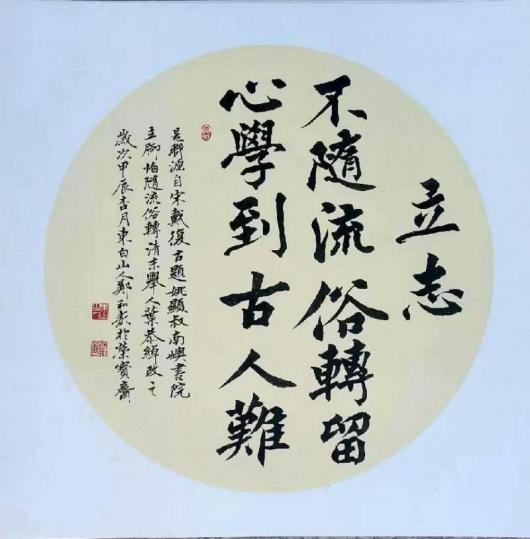 立志
不隨流俗轉留
心學到古人難
是聯源自宋戴復古題姚顯叔南嶼書院
立脚怕隨流俗轉清末舉人葉恭綽改之
歲次甲辰杏月東白山人鄭於榮寶齋